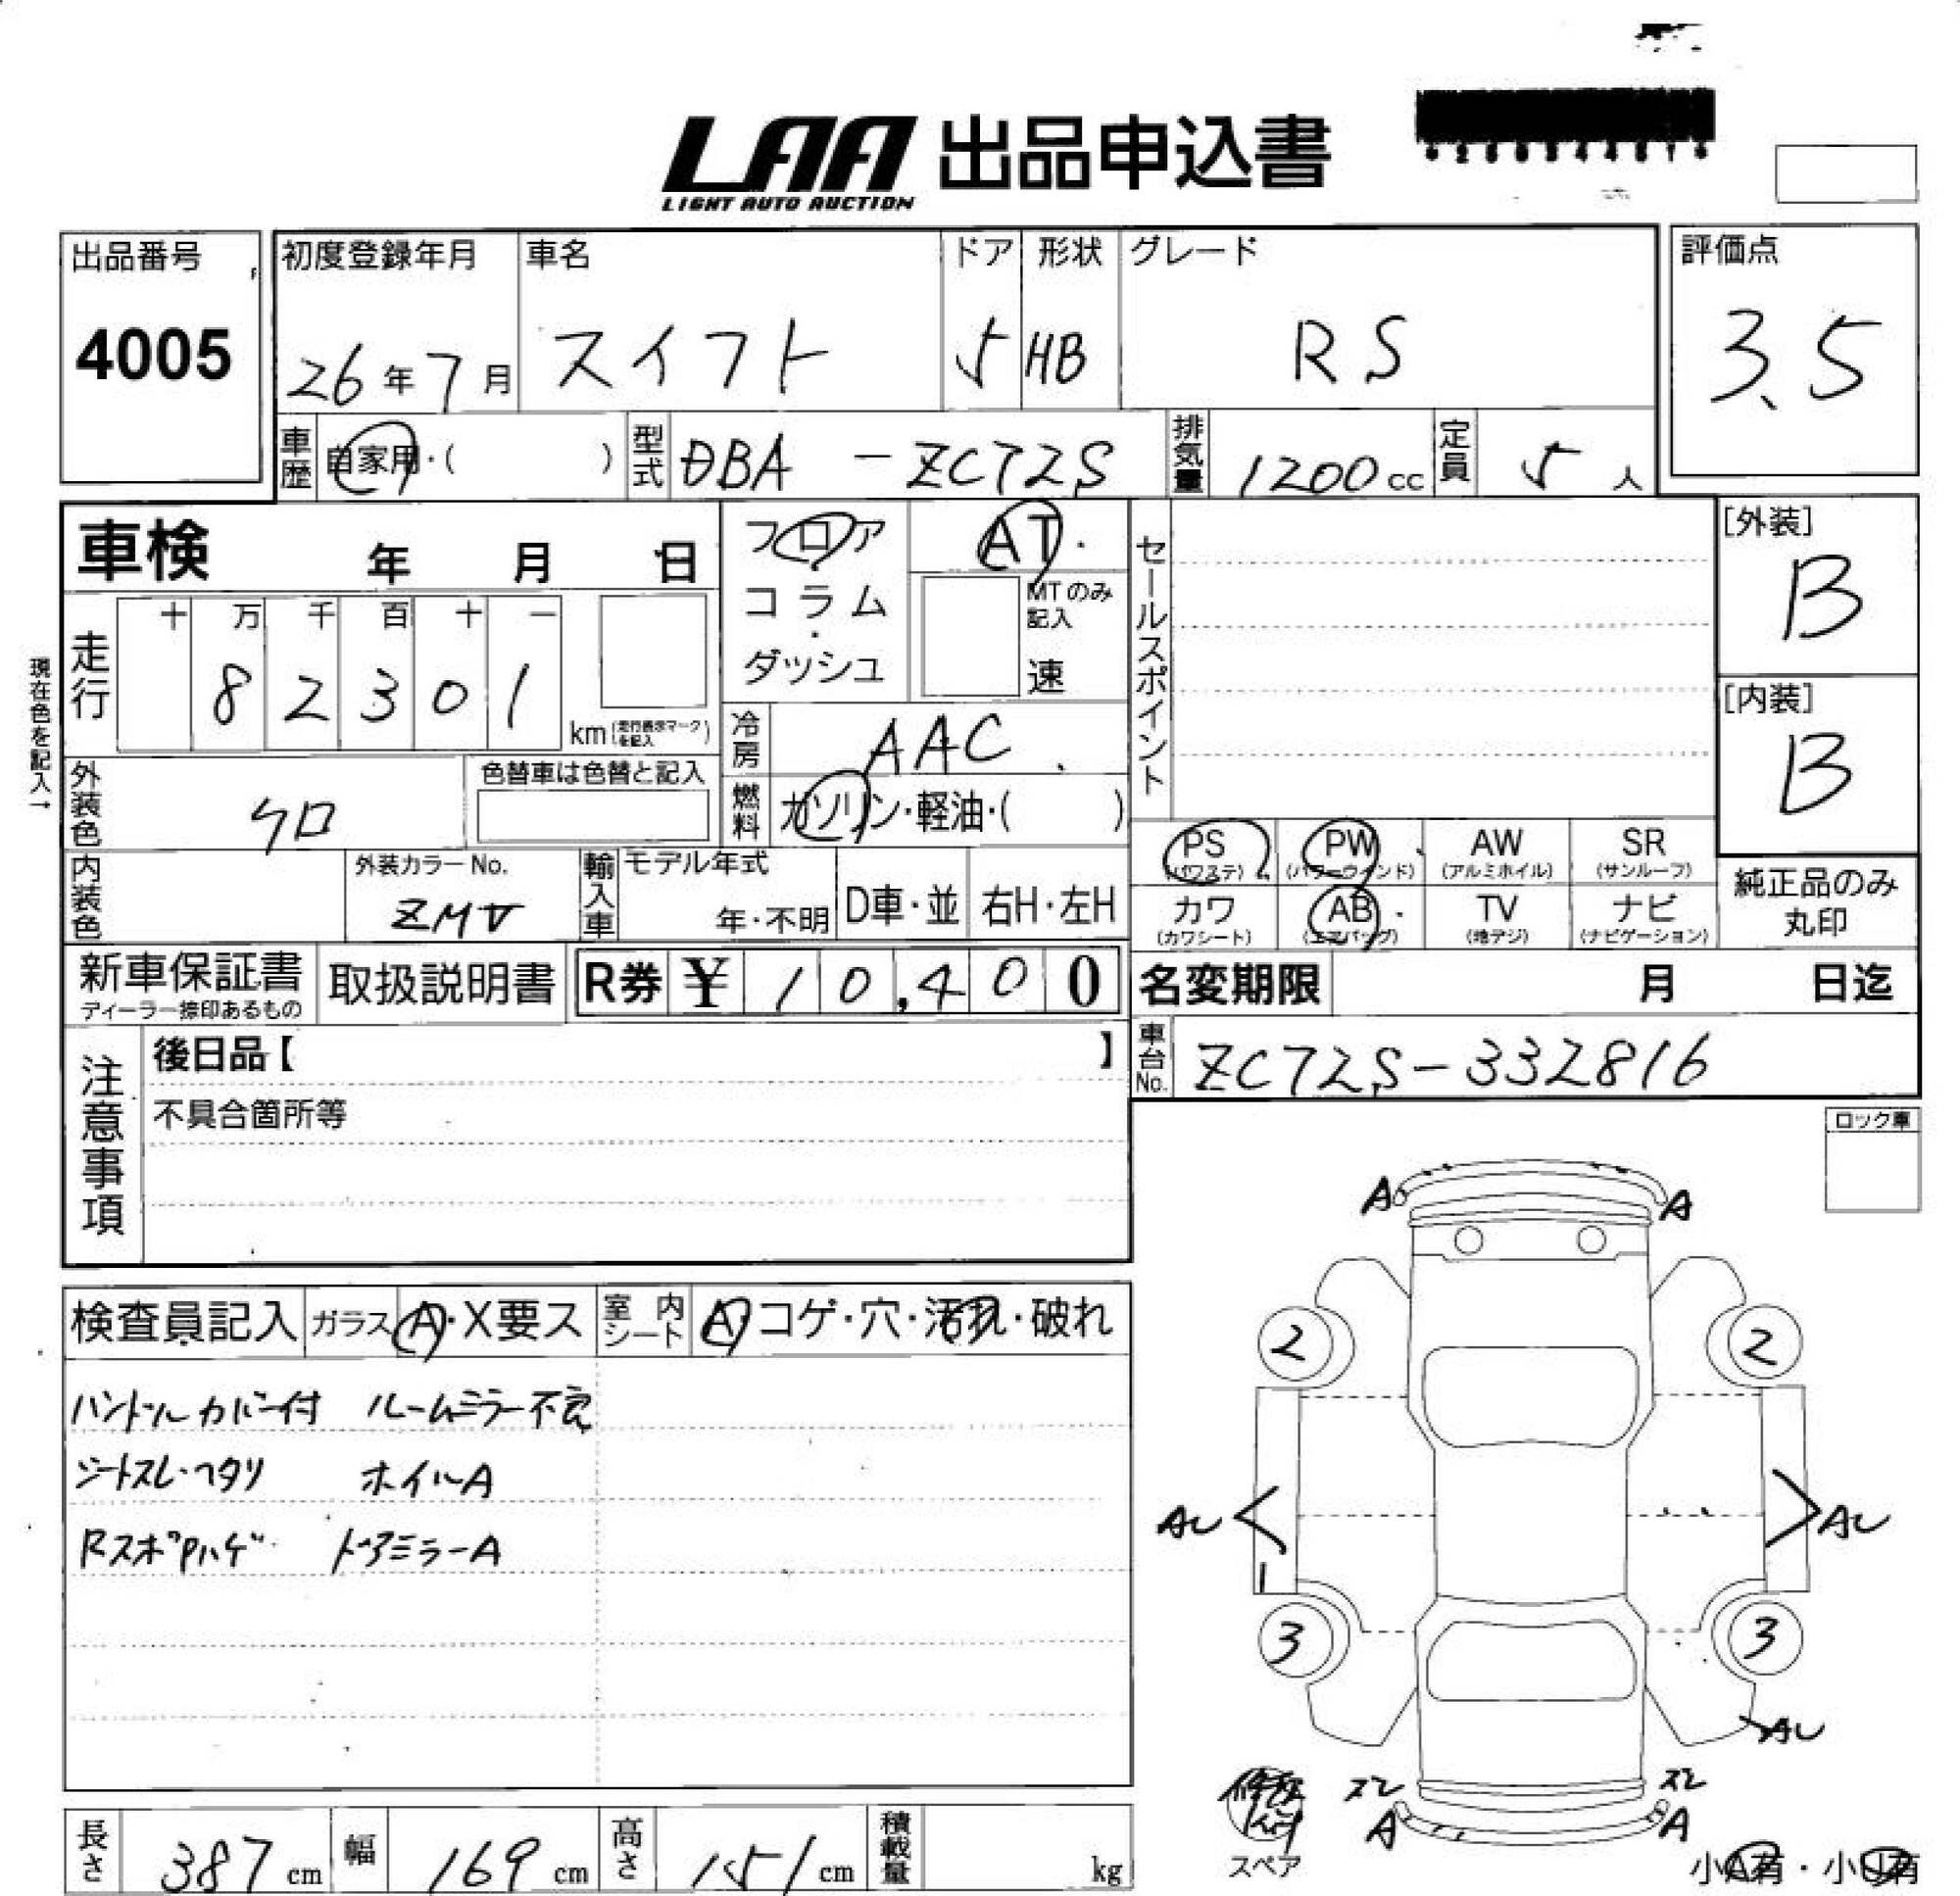 LAA 出品申込書
LIGHT AUTO AUCTION
出品番号
4005
初度登録年月
26年7月
車名
スイフト
ドア
5
形状
HB
グレード
RS
評価点
3.5
車歴 自家用・( )
型式 DBA - ZC72S
排気量 1200cc
定員 5人
車検 年 月 日
フロア
コラム
・
ダッシュ
AT・
MTのみ記入
速
セールスポイント
[外装]
B
[内装]
B
現在色を記入→
走行
十 万 千 百 十 一
8 2 3 0 1
km (走行表示マークを記入)
冷房 AAC
燃料 ガソリン・軽油・( )
外装色 クロ
色替車は色替と記入
内装色
外装カラーNo.
ZMV
輸入車
モデル年式
年・不明
D車・並
右H・左H
PS (パワステ)
PW (パワーウインド)
AW (アルミホイル)
SR (サンルーフ)
カワ (カワシート)
AB (エアバッグ)
TV (地デジ)
ナビ (ナビゲーション)
純正品のみ
丸印
新車保証書
ディーラー捺印あるもの
取扱説明書
R券 ¥ 10,400
名変期限 月 日迄
車台No. ZC72S-332816
注意事項
後日品【 】
不具合箇所等
ロック車
検査員記入
ガラス A・X要ス
室内シート A・コゲ・穴・汚れ・破れ
ハンドルカバー付 ルームミラー不良
シートスレ・ヘタリ ホイルA
RスポPハゲ ドアミラーA
A A
2 2
AU AU
3 3
AU
スレ スレ
A A
スペア
小A有・小U有
長さ 387cm
幅 169cm
高さ 151cm
積載量 kg